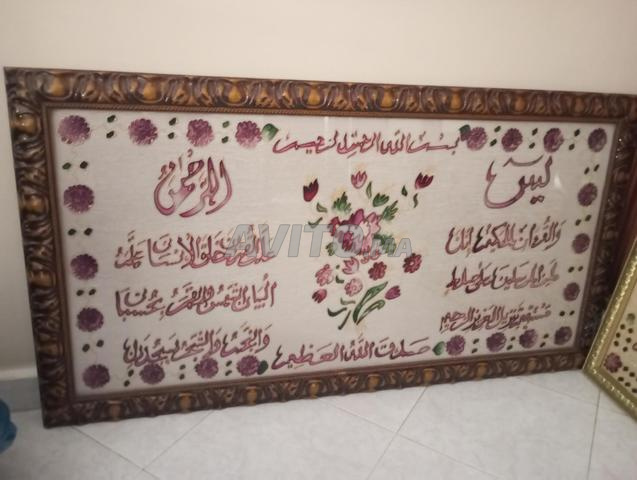 بسم الله الرحمن الرحيم
يس
والقرءان الحكيم إنك
لمن المرسلين على صراط
مستقيم تنزيل العزيز الرحيم
الرحمن
علم القرءان خلق الإنسان علمه
البيان الشمس والقمر بحسبان
والنجم والشجر يسجدان
صدق الله العظيم
AVITO.MA